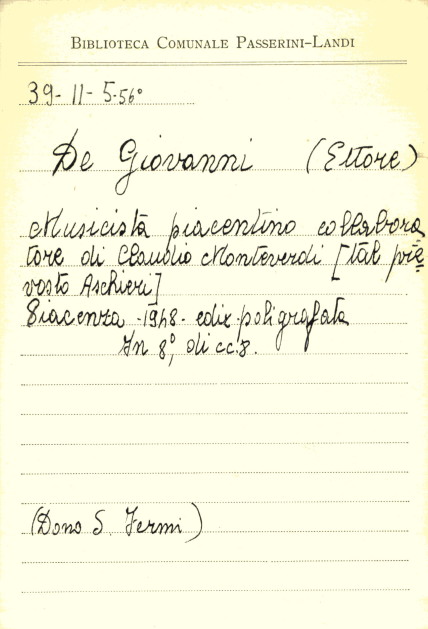 BIBLIOTECA COMUNALE PASSERINI-LANDI
39-11-5-56°
De Giovanni (Ettore)
Musicista piacentino collabora
tore di Claudio Monteverdi [tal pre=
vosto Aschieri]
Piacenza - 1948 - ediz. poligrafata
In 8°, di cc. 8.
(Dono S. Fermi)